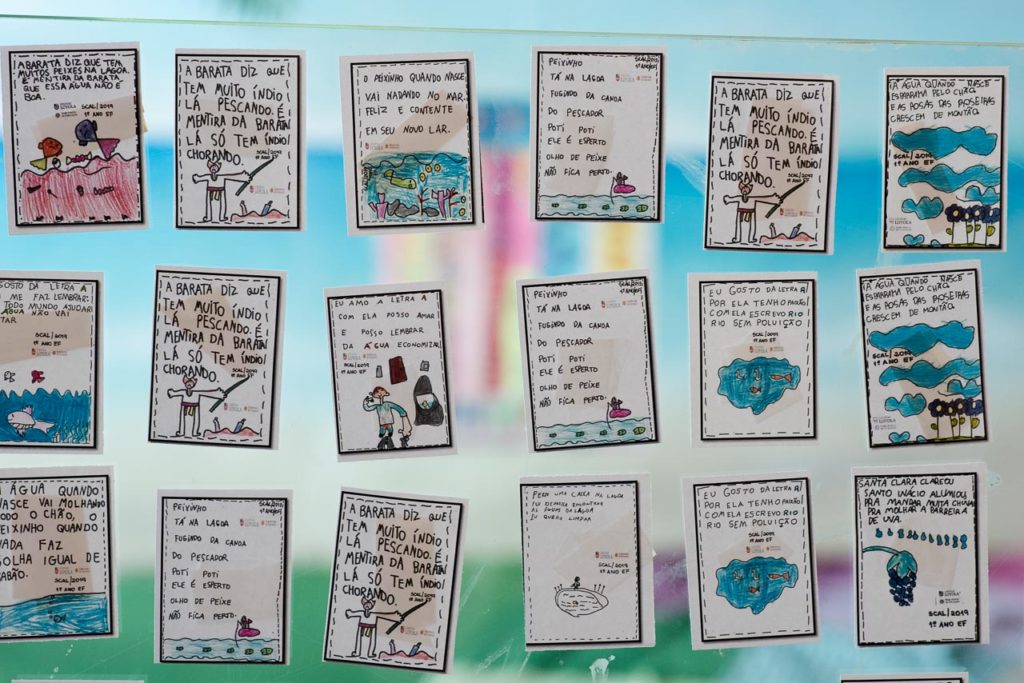 A BARATA DIZ QUE TEM
MUITOS PEIXES NA LAGOA.
É MENTIRA DA BARATA
QUE ESSA ÁGUA NÃO É
BOA.
SCAL/2019
1º ANO EF
A BARATA DIZ QUE
TEM MUITO ÍNDIO
LÁ PESCANDO. É
MENTIRA DA BARATA
LÁ SÓ TEM ÍNDIO
CHORANDO.
SCAL/2019
1º ANO EF
O PEIXINHO QUANDO NASCE
VAI NADANDO NO MAR.
FELIZ E CONTENTE
EM SEU NOVO LAR.
SCAL/2019
1º ANO EF
PEIXINHO
TÁ NA LAGOA
FUGINDO DA CANOA
DO PESCADOR
POTI POTI
ELE É ESPERTO
OLHO DE PEIXE
NÃO FICA PERTO.
SCAL/2019
A BARATA DIZ QUE
TEM MUITO ÍNDIO
LÁ PESCANDO. É
MENTIRA DA BARATA
LÁ SÓ TEM ÍNDIO
CHORANDO.
SCAL/2019
1º ANO EF
A ÁGUA QUANDO NASCE
ESPARRAMA PELO CHÃO
E AS ROSAS DAS ROSEIRAS
CRESCEM DE MONTÃO.
SCAL/2019
1º ANO EF
LOYOLA
GOSTO DA LETRA A
ME FAZ LEMBRAR
TODO MUNDO AJUDAR
ÁGUA NÃO VAI
SCAL/2019
1º ANO EF
A BARATA DIZ QUE
TEM MUITO ÍNDIO
LÁ PESCANDO. É
MENTIRA DA BARATA
LÁ SÓ TEM ÍNDIO
CHORANDO.
SCAL/2019
1º ANO EF
EU AMO A LETRA A
COM ELA POSSO AMAR
E POSSO LEMBRAR
DA ÁGUA ECONOMIZAR
SCAL/2019
1º ANO EF
PEIXINHO
TÁ NA LAGOA
FUGINDO DA CANOA
DO PESCADOR
POTI POTI
ELE É ESPERTO
OLHO DE PEIXE
NÃO FICA PERTO.
EU GOSTO DA LETRA R
POR ELA TENHO PAIXÃO
COM ELA ESCREVO RIO
RIO SEM POLUIÇÃO
SCAL/2019
1º ANO EF
A ÁGUA QUANDO NASCE
ESPARRAMA PELO CHÃO
E AS ROSAS DAS ROSEIRAS
CRESCEM DE MONTÃO.
SCAL/2019
1º ANO EF
LOYOLA
A ÁGUA QUANDO
NASCE VAI MOLHANDO
TODO O CHÃO. O
PEIXINHO QUANDO
NADA FAZ
BOLHA IGUAL DE
SABÃO.
SCAL/2019
1º ANO EF
PEIXINHO
TÁ NA LAGOA
FUGINDO DA CANOA
DO PESCADOR
POTI POTI
ELE É ESPERTO
OLHO DE PEIXE
NÃO FICA PERTO.
SCAL/2019
A BARATA DIZ QUE
TEM MUITO ÍNDIO
LÁ PESCANDO. É
MENTIRA DA BARATA
LÁ SÓ TEM ÍNDIO
CHORANDO.
SCAL/2019
1º ANO EF
UMA CAIXA NA LAGOA
DA LAGOA
EU QUERO LIMPAR
SCAL/2019
1º ANO EF
EU GOSTO DA LETRA R
POR ELA TENHO PAIXÃO
COM ELA ESCREVO RIO
RIO SEM POLUIÇÃO
SCAL/2019
1º ANO EF
SANTA CLARA CLAREOU
SANTO INÁCIO ALUMIOU
PRA MANDAR MUITA CHUVA
PRA MOLHAR A BARREIRA
DE UVA.
LOYOLA
SCAL/2019
1º ANO EF